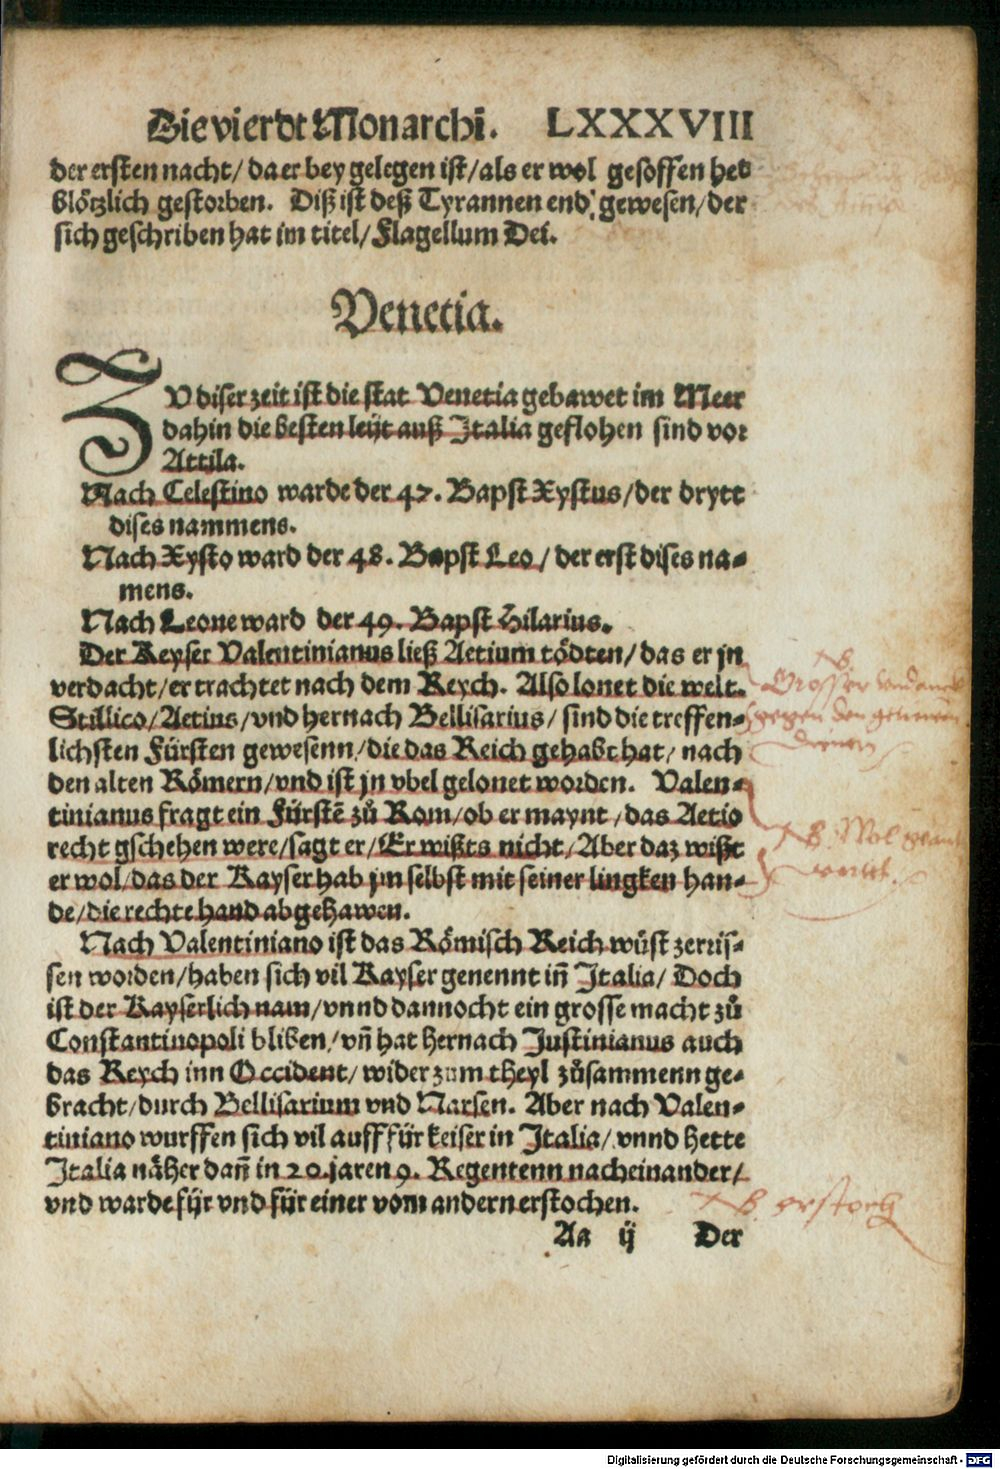 Die vierdt Monarchi. LXXXVIII
der ersten nacht/ da er bey gelegen ist/als er wol gesoffen het
blötzlich gestorben. Diß ist deß Tyrannen end, gewesen/der
sich geschriben hat im titel/ Flagellum Dei.
Venetia.
ZV diser zeit ist die stat Venetia gebawet im Meer
dahin die besten leüt auß Italia geflohen sind vor
Attila.
Nach Celestino warde der 47. Bapst Xystus/der drytt
dises nammens.
Nach Xysto ward der 48. Bapst Leo/ der erst dises na-
mens.
Nach Leone ward der 49. Bapst Hilarius.
Der Keyser Valentinianus ließ Aetium tödten/das er jn
verdacht/er trachtet nach dem Reych. Also lonet die welt.
Stillico/Aetius/vnd hernach Bellisarius/ sind die treffen-
lichsten Fürsten gewesenn/die das Reich gehabt hat/ nach
den alten Römern/vnd ist jn vbel gelonet worden. Valen-
tinianus fragt ein Fürstē zů Rom/ob er maynt/das Aetio
recht gschehen were/sagt er/Er wißts nicht/Aber daz wißt
er wol/das der Kayser hab jm selbst mit seiner lingken han-
de/die rechte hand abgehawen.
Nach Valentiniano ist das Römisch Reich wüst zerris-
sen worden/haben sich vil Kayser genennt iñ Italia/ Doch
ist der Kayserlich nam/vnnd dannocht ein grosse macht zů
Constantinopoli bliben/vñ hat hernach Justinianus auch
das Reych inn Occident/wider zum theyl zůsammenn ge-
bracht/durch Bellisarium vnd Narsen. Aber nach Valen-
tiniano wurffen sich vil auff für keiser in Italia/vnnd hette
Italia näher dañ in 20.jaren 9. Regentenn nacheinander/
vnd warde für vnd für einer vom andern erstochen.
Aa ij Der
NB.
Grosser
gegen den
dienen
NB. Wol
NB. erstoch
Digitalisierung gefördert durch die Deutsche Forschungsgemeinschaft - DFG